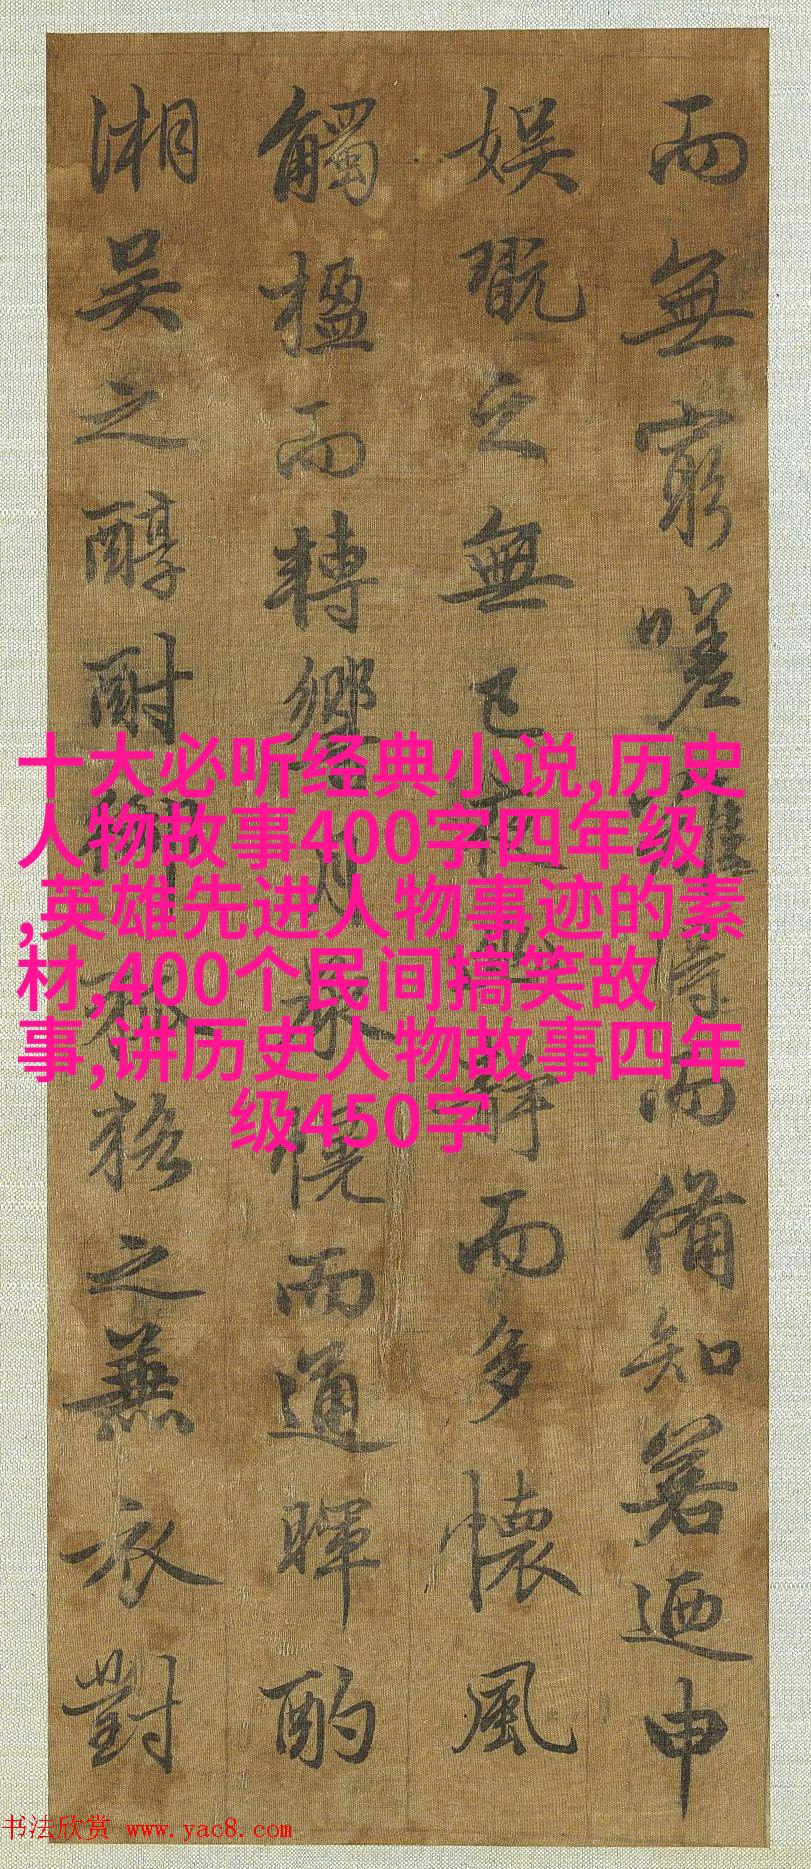 而無窮嗟得而備知若迺申
娛翫之無已夜靜而多懷風
觸楹而轉響月承幌而通暉酌
湘吳之醇酎御狐狢之兼衣對
十大必听经典小说,历史
人物故事400字四年级
,英雄先进人物事迹的素
材,400个民间搞笑故
事,讲历史人物故事四年
级450字
书法欣赏 www.yac8.com